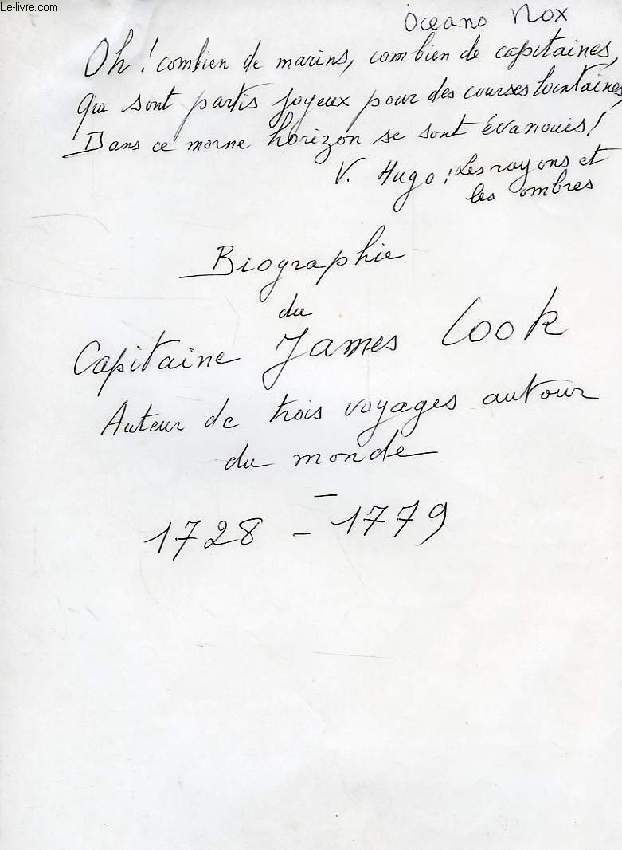 Le-livre.com
Oceano Nox
Oh! combien de marins, combien de capitaines,
Qui sont partis joyeux pour des courses lointaines,
Dans ce morne horizon se sont évanouis!
V. Hugo: Les rayons et
les ombres
Biographie
du
Capitaine James Cook
Auteur de trois voyages autour
du monde
—
1728 - 1779